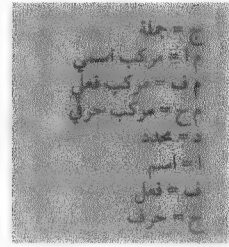 ج = جملة
م أ = مركب اسمي
م ف = مركب فعلي
م ح = مركب حرفي
د = محدد
ا = اسم
ف = فعل
ح = حرف